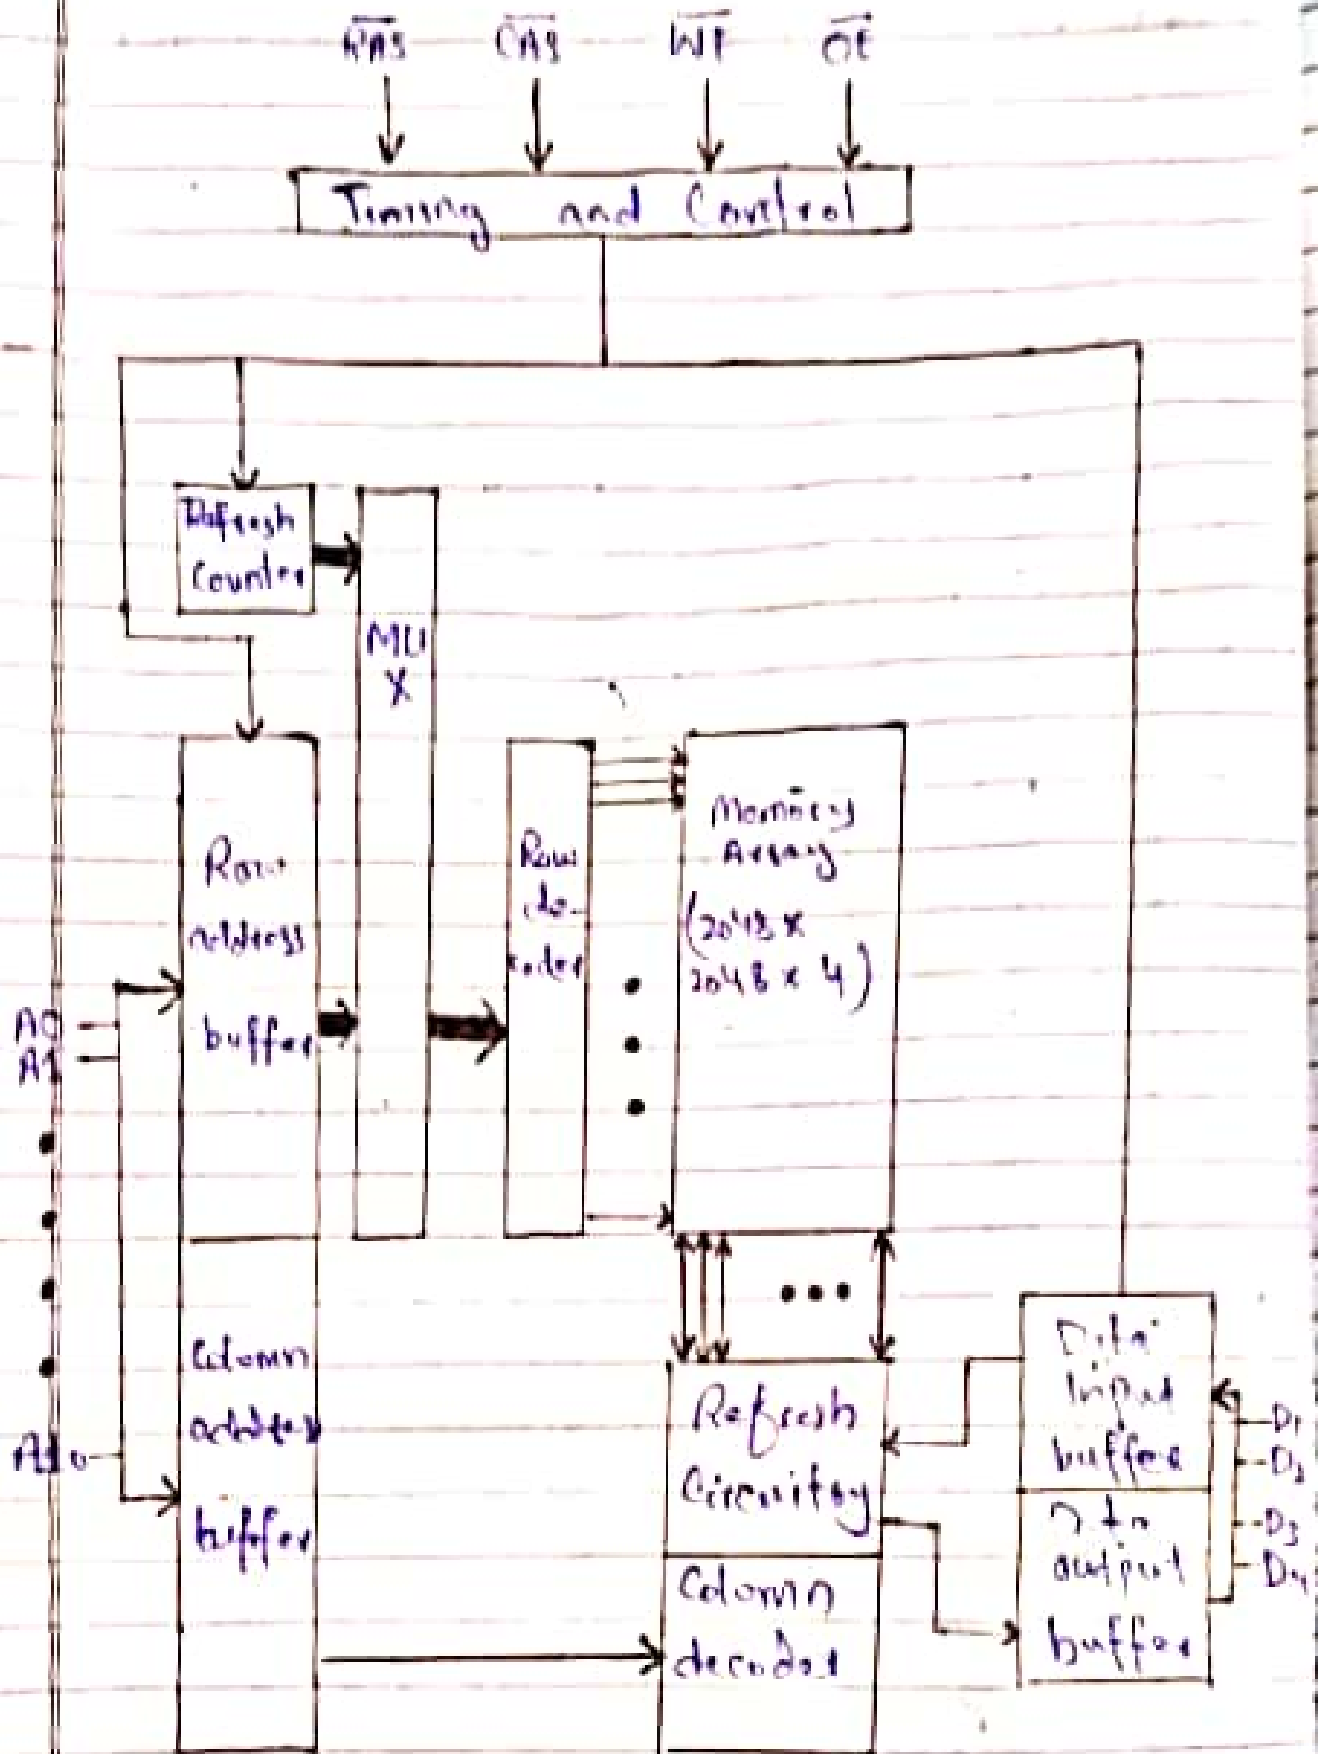 RAS CAS WE OE
Timing and Control
Refresh
Counter
MU
X
Row
address
buffer
Row
de-
coder
Memory
Array
(2048 x
2048 x 4)
A0
A1
A10
Column
address
buffer
Refresh
Circuitry
Column
decoder
Data
Input
buffer
Data
output
buffer
D1
D2
D3
D4